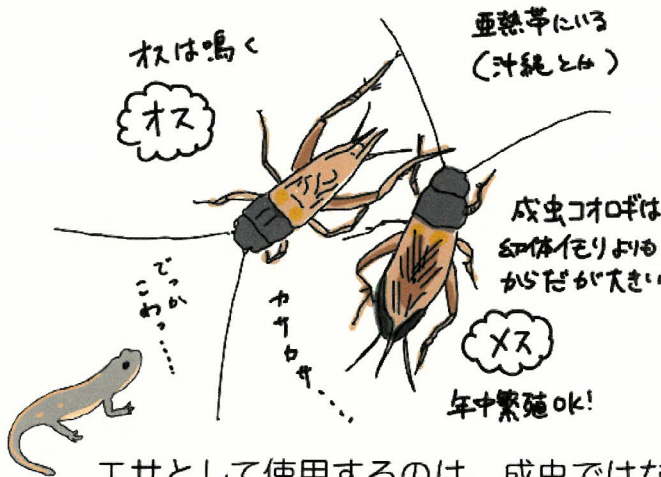 オスは鳴く
オス
亜熱帯にいる
(沖縄とか)
成虫コオロギは
幼体イモリよりも
からだが大きい
メス
年中繁殖OK!
でっか
こわっ……
カサカサ……
エサとして使用するのは、成虫ではな